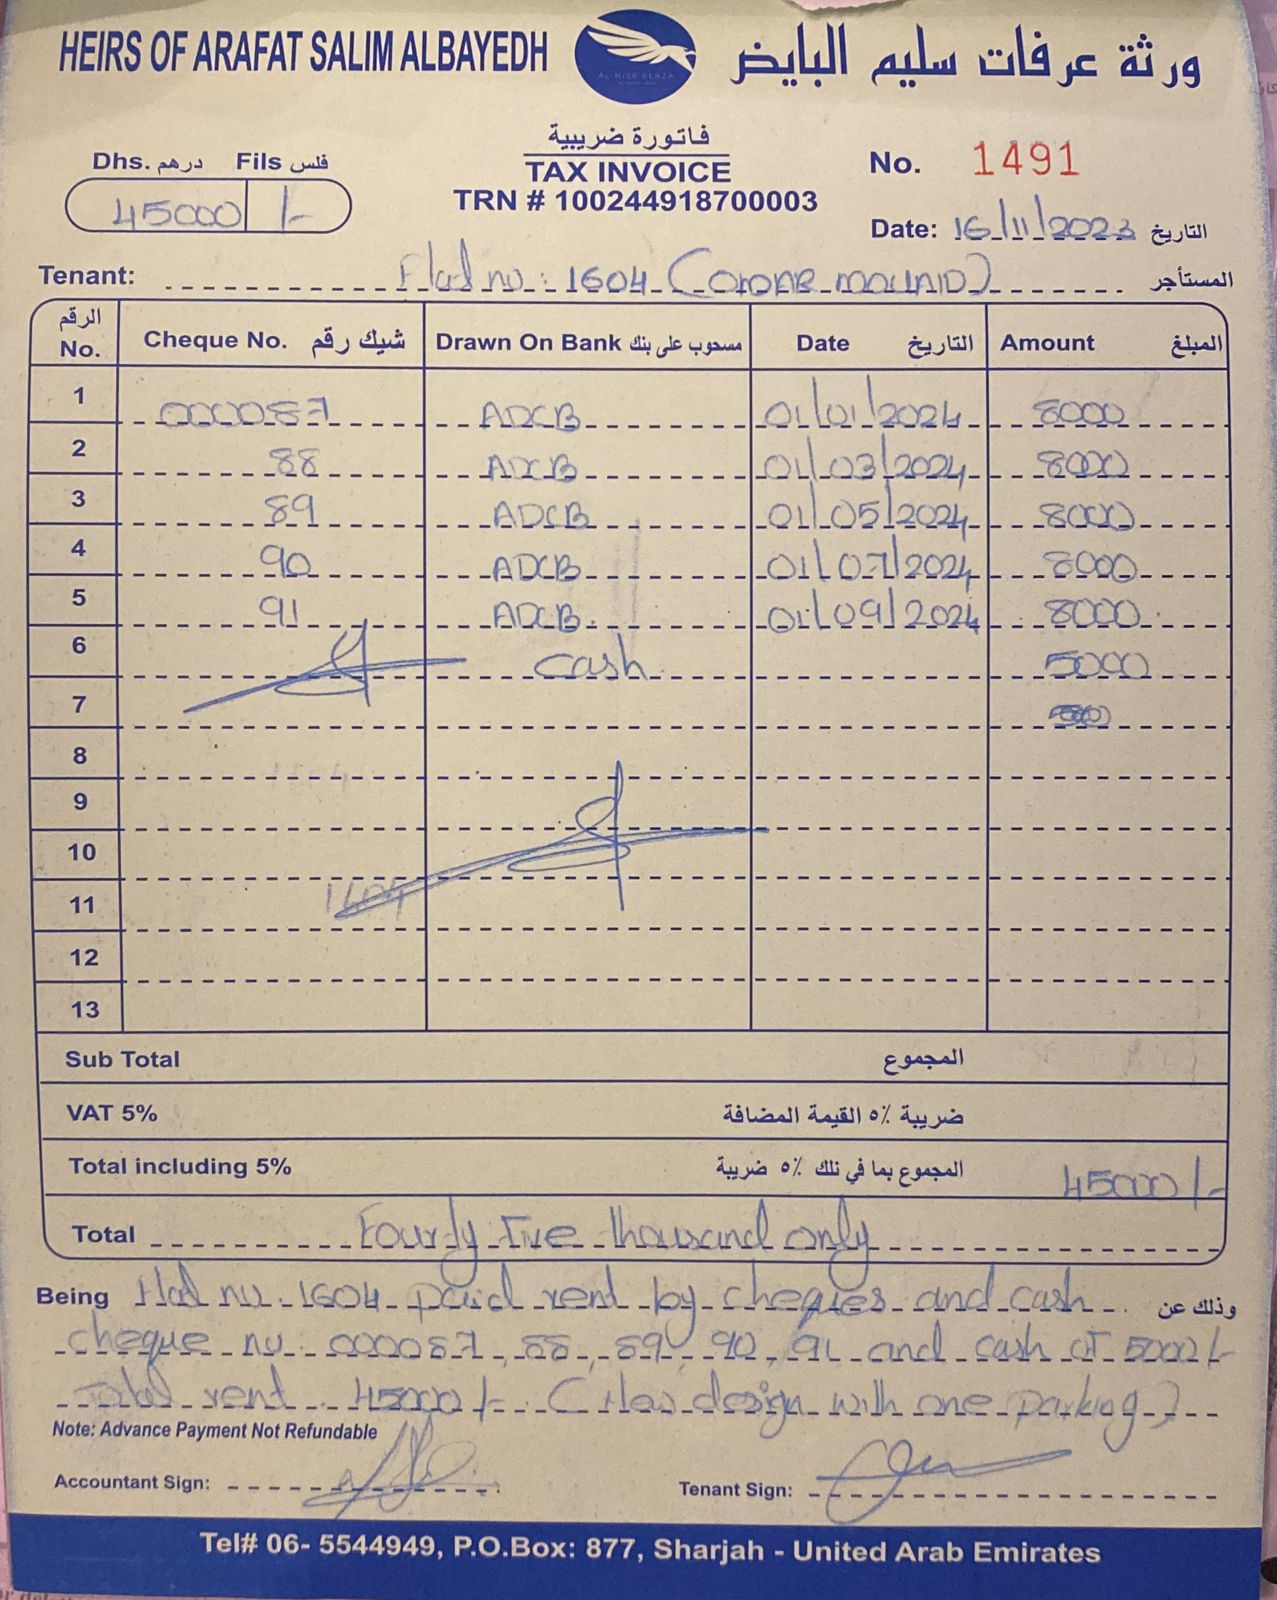 HEIRS OF ARAFAT SALIM ALBAYEDH ورثة عرفات سليم البايض
AL-NISR PLAZA
فاتورة ضريبية
TAX INVOICE
TRN # 100244918700003
Dhs. درهم Fils فلس
45000 /-
No. 1491
Date: 16/11/2023 التاريخ
Tenant: Flad no: 1604 ( المستأجر
الرقم No. Cheque No. شيك رقم Drawn On Bank مسحوب على بنك Date التاريخ Amount المبلغ
1 000087 ADCB 01/01/2024 8000
2 88 ADCB 01/03/2024 8000
3 89 ADCB 01/05/2024 8000
4 90 ADCB 01/07/2024 8000
5 91 ADCB 01/09/2024 8000
6 cash 5000
7
8
9
10
11 1604
12
13
Sub Total المجموع
VAT 5% ضريبة ٥٪ القيمة المضافة
Total including 5% المجموع بما في ذلك ٥٪ ضريبة 45000/-
Total Fourty Five thousand only
Being Flad no. 1604 paid rent by cheques and cash وذلك عن
cheque no. 000087, 88, 89, 90, 91 and cash of 5000/-
Total rent 45000/- ( design with one parking)
Note: Advance Payment Not Refundable
Accountant Sign: Tenant Sign:
Tel# 06- 5544949, P.O.Box: 877, Sharjah - United Arab Emirates